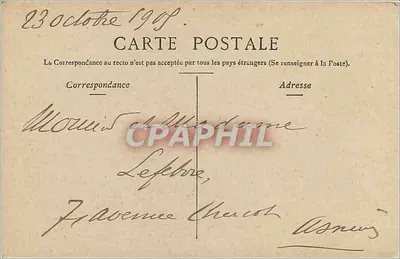 23 octobre 1905.
CARTE POSTALE
La Correspondance au recto n'est pas acceptée par tous les pays étrangers (Se renseigner à la Poste).
Correspondance
Adresse
et Madame
CPAPHIL
Lefebvre,
7, avenue